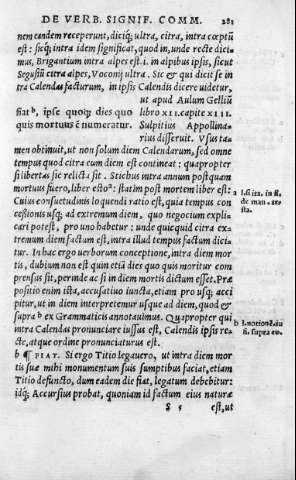 DE VERB. SIGNIF. COMM. 281
nem eandem receperunt, diciq; ultra, citra, intra cœptũ
est: sicq; intra idem significat, quod in, unde recte dici-
mus, Brigantium intra alpes est. i. in alpibus ipsis, sicut
Segusiũ citra alpes, Voconij ultra. Sic & qui dicit se in
tra Calendas facturum, in ipsis Calendis dicere uidetur,
ut apud Aulum Gelliũ
fiat b, ipse quoq; dies quo libro XII. capite XIII.
quis mortuus è numeratur. Sulpitius Appollina-
rius disseruit. Vsus ta-
men obtinuit, ut non solum diem Calendarum, sed omne
tempus quod citra eum diem est contineat: quapropter
si libertas sic relicta sit. Stichus intra annum postquam
mortuus fuero, liber esto a: statim post mortem liber est:
Cuius consuetudinis loquendi ratio est, quia tempus con
cessionis usq; ad extremum diem, quo negocium expli-
cari potest, pro uno habetur: unde quicquid citra ex-
tremum diem factum est, intra illud tempus factum dici-
tur. In hac ergo uerborum conceptione, intra diem mor
tis, dubium non est quin etiã dies quo quis moritur com
prensus sit, perinde ac si in diem mortis dictum esset. Præ
positio enim ista, accusatiuo iuncta, etiam pro usq; acci
pitur, ut in diem interpretemur usque ad diem, quod &
supra b ex Grammaticis annotauimus. Quapropter qui
intra Calendas pronunciare iussus est, Calendis ipsis re-
cte, atque ordine pronunciaturus est.
b ¶ FIAT. Si ergo Titio legauero, ut intra diem mor
tis suæ mihi monumentum suis sumptibus faciat, etiam
Titio defuncto, dum eadem die fiat, legatum debebitur:
idq; Accursius probat, quoniam id factum eius naturæ
S 5 est, ut
a l. si ita. in ff.
de man. te-
sta.
b l.
ff. supra eo.